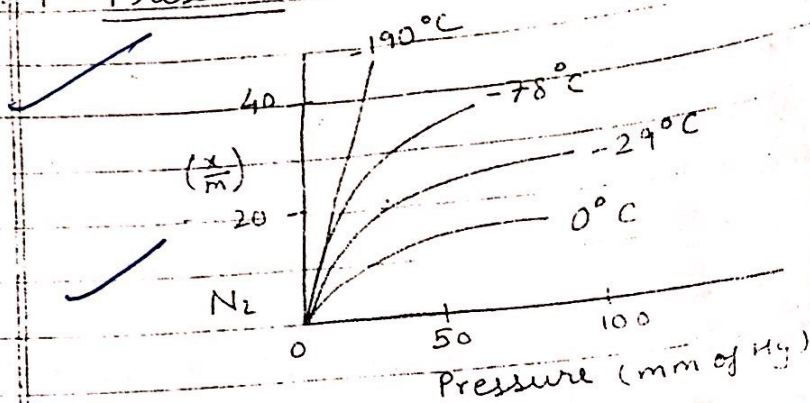 -190°C
40
-78°C
(x/m)
-29°C
20
0°C
N2
0
50
100
Pressure (mm of Hg)